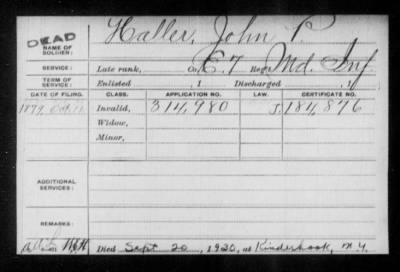 DEAD
NAME OF SOLDIER: Haller, John P.
SERVICE: Late rank, Co. E. 7 Reg't Md. Inf.
TERM OF SERVICE: Enlisted , 1 Discharged , 1
DATE OF FILING. CLASS. APPLICATION NO. LAW. CERTIFICATE NO.
1879, Oct. Invalid, 314,980 J. 184,876
Widow,
Minor,
ADDITIONAL SERVICES:
REMARKS:
Died Sept 20, 1920, at Kinderhook, N.Y.